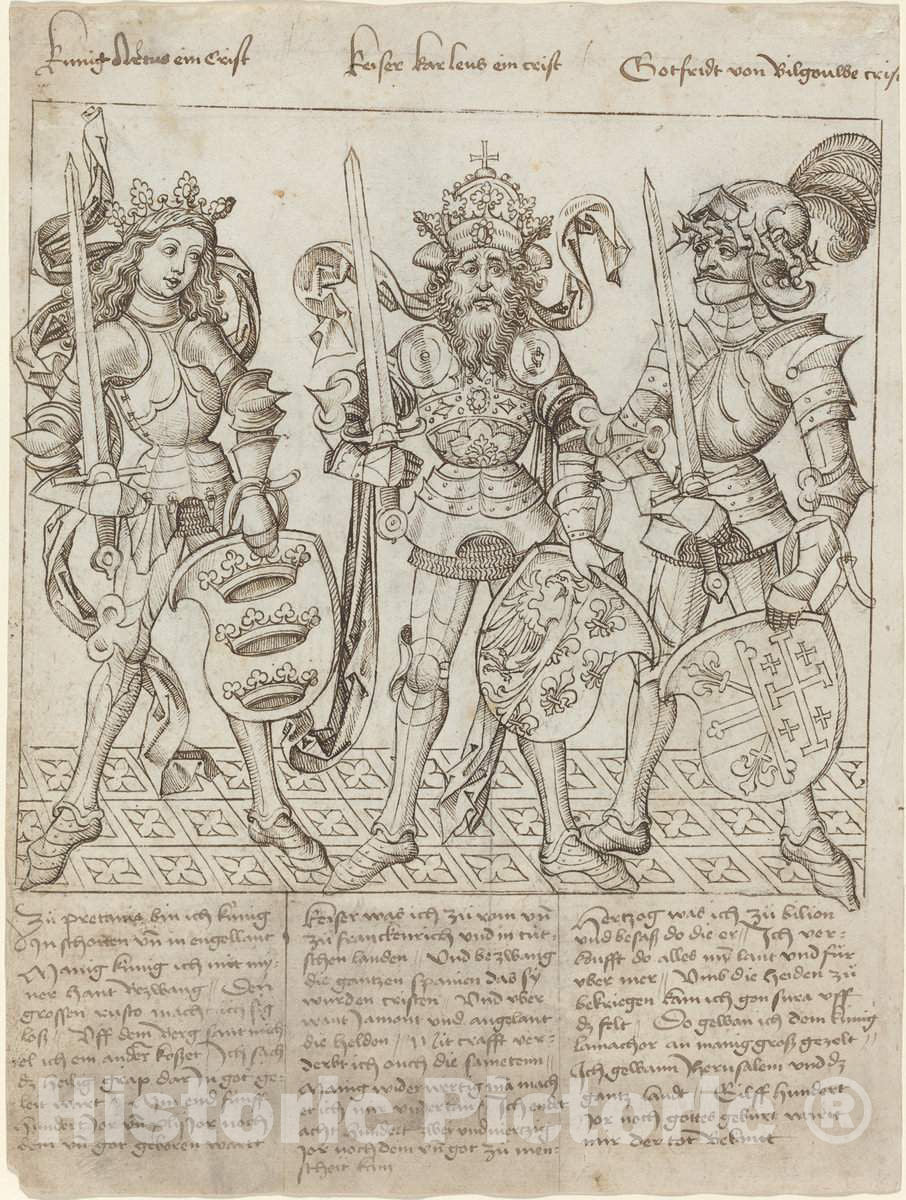 Kunig Artus ein Crist
Keiser karleus ein crist
Gotfridt von Bilgouwe cris
Zu pretania bin ich kunig
In schotten vn in engellant
Manig kunig ich mit my
ner hant Bezwang // Den
grossen rusto mach ich sig
loß // Vff dem Berg sant mich
el ich ein ander Ich sach
dz heilig grap dar In got ge
leit wart
hundert Jor noch
dem vn got geboren wart
Keiser was ich zu rom vn
zu franckenrich und in tut
schen landen // Vnd bezwang
die gantzen spanien das sy
wurden cristen // Vnd uber
want Jamont und angelant
die heldon // Mit crafft ver
derbt ich ouch die
Manig wider wertig man mach
er ich mir vndertan // Ich endet
acht hundert zwei und vierzig
Jor noch dem vn got zu men
scheit kam
Hertzog was ich zu bilion
und besaß do die er // Ich ver
koufft do alles min lant und für
uber mer // Vmb die heiden zu
bekriegen kam ich gon sura vff
dz felt // Do gewan ich dem kunig
lamachor an manig groß gezelt //
Ich gewann Iherusalem und dz
gantz landt // Eilff hundert
Jor noch gottes geburt wart
mir der tot Bekant
Historic Pictoric ®